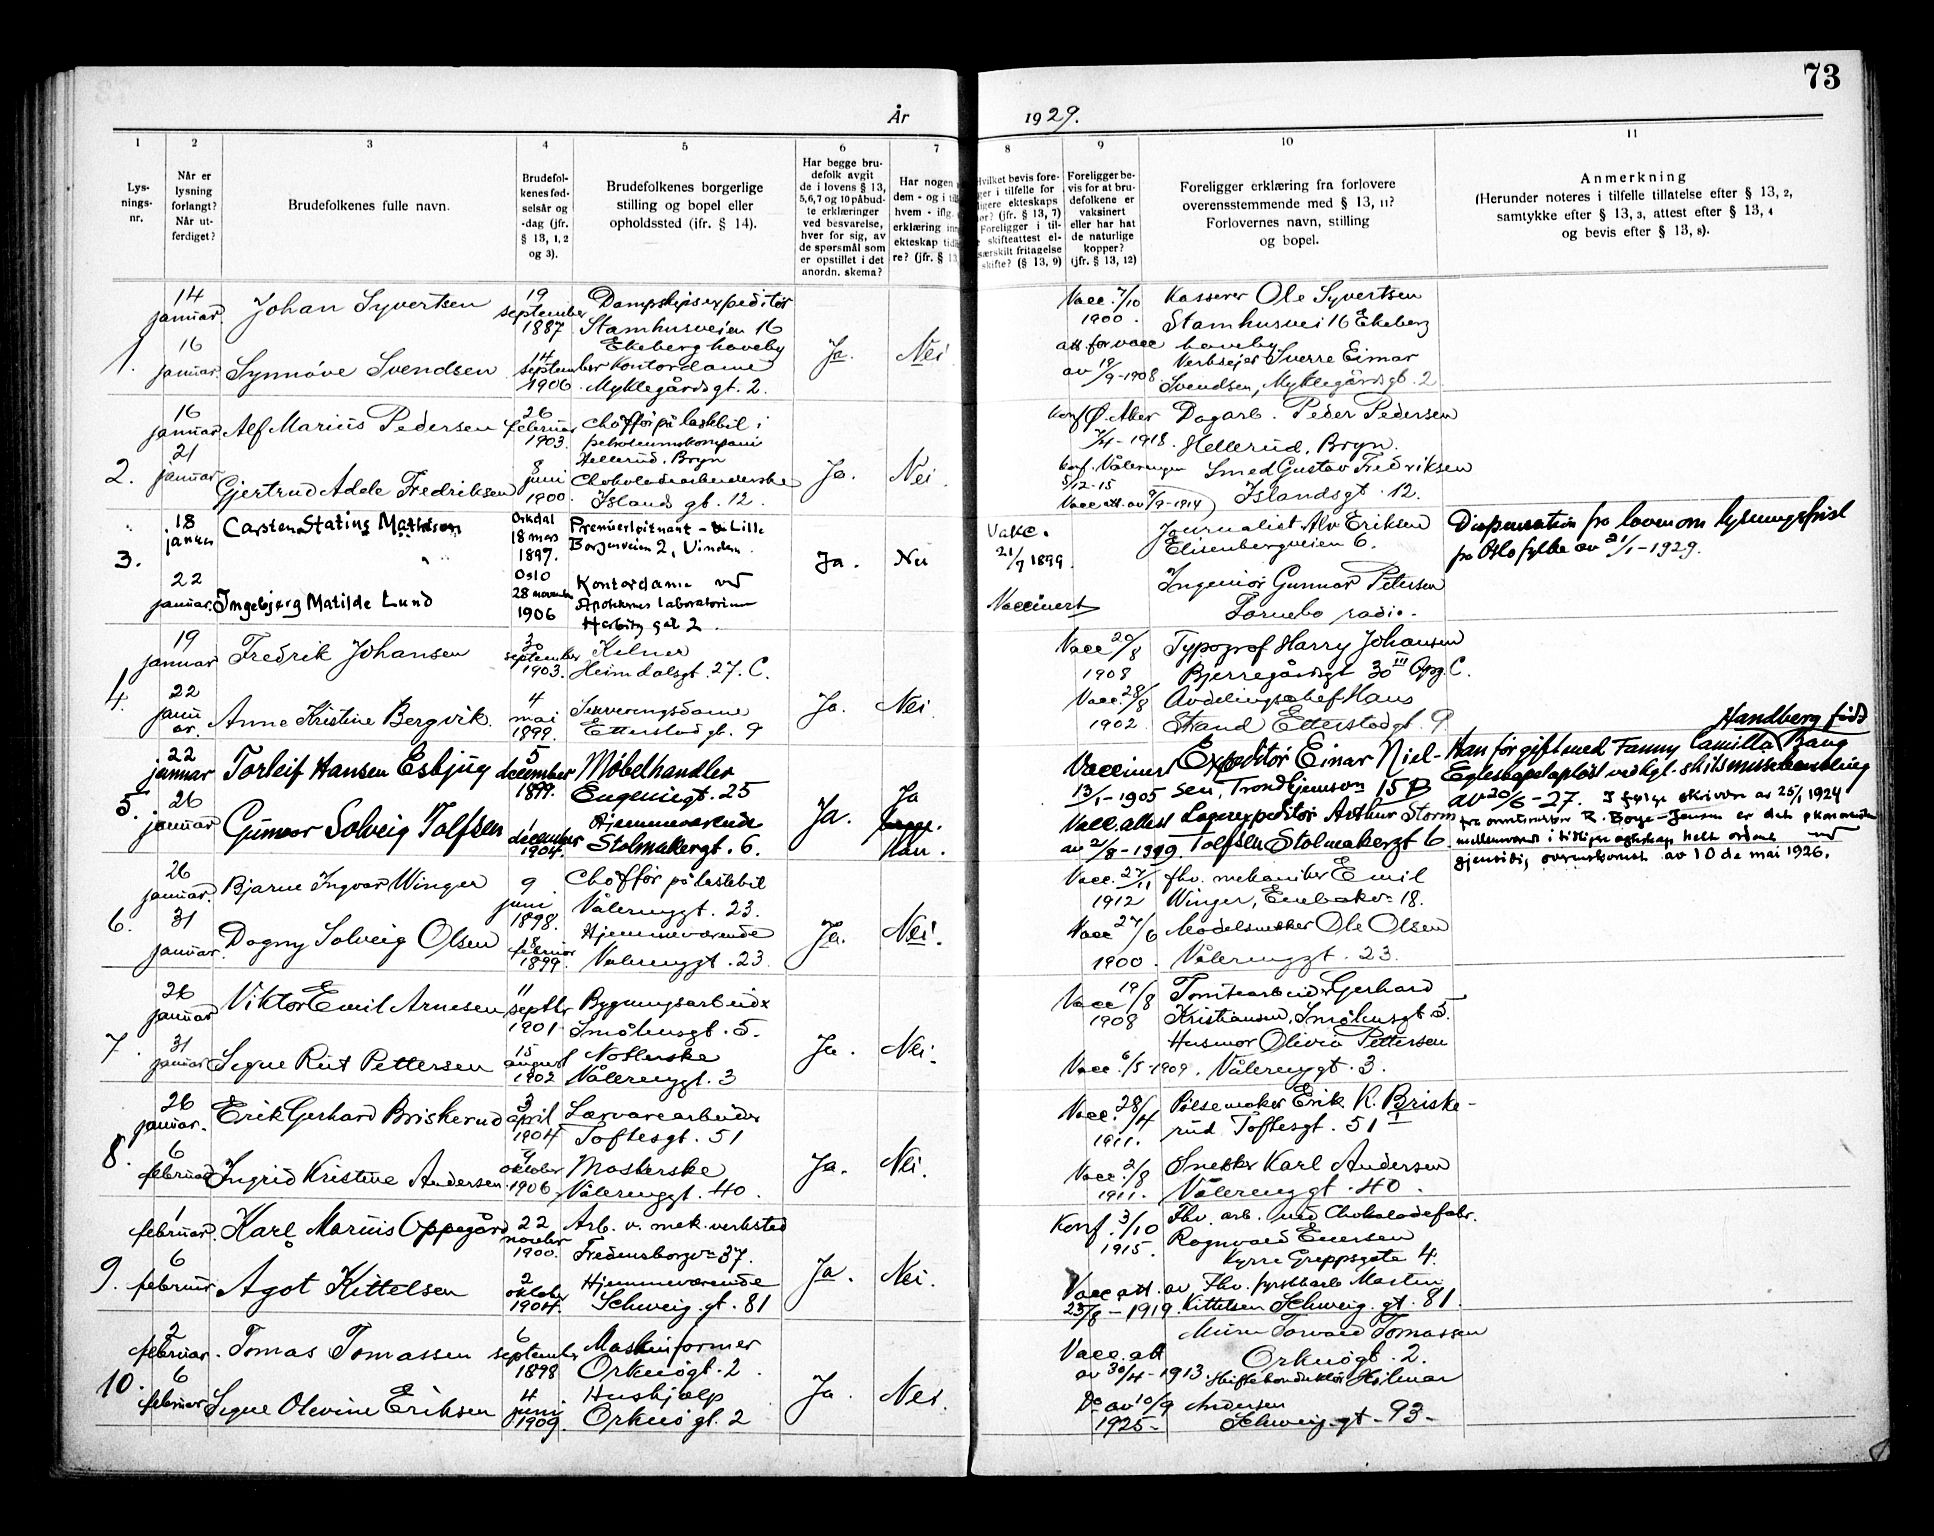 73
År 1929.
1 2 3 4 5 6 7 8 9 10 11
Lys-
nings-
nr.
Når er
lysning
forlangt?
Når ut-
ferdiget?
Brudefolkenes fulle navn.
Brudefol-
kenes fød-
selsår og
-dag (jfr.
§ 13, 1, 2
og 3).
Brudefolkenes borgerlige
stilling og bopel eller
opholdssted (ifr. § 14).
Har begge bru-
defolk avgit
de i lovens § 13,
5,6,7 og 10 påbud-
te erklæringer
ved besvarelse,
hver for sig, av
de spørsmål som
er opstillet i det
anordn. skema?
Har nogen
dem - og i
hvem - iflg.
erklæring
ekteskap
re? (jfr. § 13
Hvilket bevis fore-
ger i tilfelle for
ligere ekteskaps
(jfr. § 13, 7)
Foreligger i til-
skifteattest el-
særskilt fritagelse
skifte? (§ 13, 9)
Foreligger be-
vis for at bru-
defolkene er
vaksinert
eller har hat
de naturlige
kopper?
(jfr. § 13, 12)
Foreligger erklæring fra forlovere
overensstemmende med § 13, 11?
Forlovernes navn, stilling
og bopel.
Anmerkning
(Herunder noteres i tilfelle tillatelse efter § 13, 2,
samtykke efter § 13, 3, attest efter § 13, 4
og bevis efter § 13, 8).
1.
14 januar. Johan Syvertsen 19 september 1887 Dampskipsexpeditør
Stamhusveien 16
Ekeberg haveby
16 januar. Synnøve Svendsen 14 september 1906 Kontordame
Myklegårdsgt. 2.
Ja. Nei.
Vacc. 7/10 1900. Kasserer Ole Syvertsen
Stamhusvei 16 Ekeberg
haveby
att for vacc av 19/9-1908. Verkseier Sverre Eimar
Svendsen, Myklegårdsgt. 2
2.
16 januar. Alf Marius Pedersen 26 februar 1903. Chaffør på lastebil i
petroleumskompani
Hellerud. Bryn
21 januar Gjertrud Adele Fredriksen 8 juni 1900. Chokoladearbeiderske
Islands gt. 12.
Ja. Nei.
Konf Ø. Aker 7/4-1918. Dagarb. Peder Pedersen
Hellerud, Bryn.
Konf. Vålerengen 5/12-15 Smed Gustav Fredriksen
Vacc att. av 9/9-1914 Islandsgt. 12.
3.
18 januar Carsten Statius Mathisen Orkdal 18 mars 1897. Premierløitnant - Lille
Borgenveien 2, Vindern.
22 januar. Ingebjørg Matilde Lund Oslo 28 november 1906 Kontordame ved
Apotekernes laboratorium
Harbitz gat 2.
Ja. Nei
Vakc. 21/7 1899. Journalist Alv Eriksen
Elisenbergveien 6.
Vaccinert Ingeniør Gunnar Petersen
Fornebo radio.
Dispensation fra loven om lysningsfrist
fra Oslo fylke av 21/1-1929.
4.
19 januar Fredrik Johansen 30 september 1903. Kelner
Heimdalsgt. 27. C.
22 januar. Anne Kristine Bergvik. 4 mai 1899. Serveringsdame
Etterstadgt. 9
Ja. Nei.
Vacc 20/8 1908 Typograf Harry Johansen
Bjerregårdsgt 30 III Opg. C.
Vacc. 28/8 1902. Avdelingschef Hans
Strand Etterstadgt. 9
5.
22 januar Torleif Hansen Esbjug 5 december 1899. Møbelhandler
Eugeniesgt. 25
26 januar Gunvor Solveig Tolfsen 1 december 1904. Hjemmeværende
Stolmakergt. 6.
Ja. Ja
Han.
Vaccinert 13/1-1905 Expeditør Einar Niel-
sen, Trondhjemsvn 15 B
Vacc. attest av 2/8-1919. Lagerexpeditør Arthur Storm
Tolfsen Stolmakergt 6
Handberg født
Han før gift med Fanny Camilla Bang
Egteskapet opløst ved kgl. skilsmissebevilling
av 20/6-27. I følge skrivelse av 25/1 1929
fra overretssakfør R. Borge-Jensen er det økonomiske
mellemværende i tidligere egteskap helt ordnet ved
gjensidig overenskomst av 10de mai 1926.
6.
26 januar. Bjarne Ingvar Winger 9 juni 1898. Chaffør på lastebil
Vålerenggt. 23.
31 januar. Dagny Solveig Olsen 18 februar 1899. Hjemmeværende
Vålerenggt. 23.
Ja. Nei.
Vacc. 27/11 1912 fhv. mekaniker Emil
Winger, Enebakvn 18.
Vacc 27/6 1900. Modelsnekker Ole Olsen
Vålerenggt. 23.
7.
26 januar Viktor Emil Arnesen 11 septbr 1901. Bygningsarbeider
Smålensgt. 5.
31 januar Signe Rut Pettersen 15 august 1902 Notterske
Vålerenggt. 3
Ja. Nei.
Vacc 19/8 1908 Tomtearbeider Gerhard
Kristiansen, Smålensgt 5.
Husmor Olivia Pettersen
Vacc. 6/5-1909. Vålerenggt. 3.
8.
26 januar. Erik Gerhard Briskerud 3 april 1904 Lærvarearbeider
Toftesgt. 51
6 februar Ingrid Kristine Andersen 9 oktober 1906. Maskerske
Vålerenggt. 40.
Ja. Nei.
Vacc. 28/4 1911. Pølsemaker Erik K. Briske-
rud Toftesgt. 51 I
Vacc. 2/8 1911. Snekker Karl Andersen
Vålerenggt. 40.
9.
1 februar. Karl Marius Oppegård 22 november 1900. Arb. v. mek. verksted
Fredensborgvn 37.
6 februar Ågot Kittelsen 2 oktober 1904. Hjemmeværende
Schweig. gt. 81
Ja. Nei.
Konf. 3/10 1915. Fhv. arb. ved Chokoladefabr.
Ragnvald Enersen
Kyrre Greppsgate 4.
Vacc att. av 23/8-1919. Fhv. fyrstbarb Martin
Kittelsen Schweig. gt. 81.
10.
2 februar. Tomas Tomassen 6 september 1898 Maskinformer
Orknøgt. 2.
6 februar Signe Olevine Eriksen 4 juni 1909. Hushjelp
Orknøgt. 2
Ja. Nei.
Vacc. att av 30/4-1913. Murer Torvald Tomassen
Orknøgt. 2.
Do av 10/9 1925- Skiftekonduktør Hilmar
Andersen
Schweig. gt. 93-